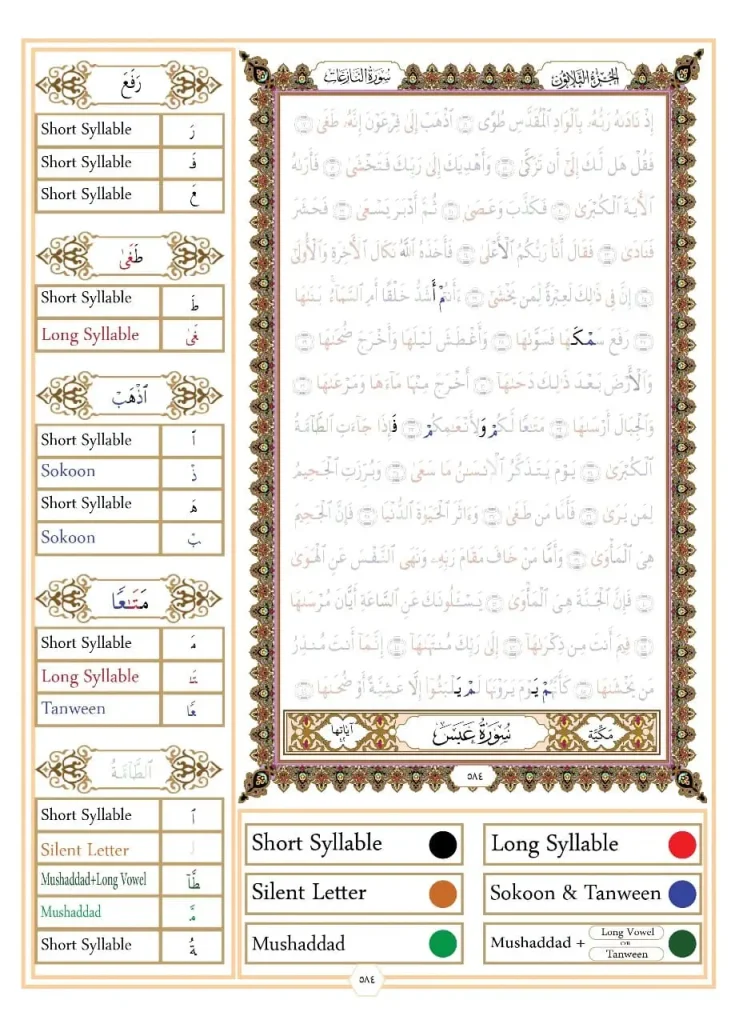 رَفَعَ
Short Syllable رَ
Short Syllable فَ
Short Syllable عَ
طَغَىٰ
Short Syllable طَ
Long Syllable غَىٰ
ٱذْهَبْ
Short Syllable ٱ
Sokoon ذْ
Short Syllable هَ
Sokoon بْ
مَتَـٰعًا
Short Syllable مَ
Long Syllable تَـٰ
Tanween عًا
ٱلطَّآمَّةُ
Short Syllable ٱ
Silent Letter ل
Mushaddad+Long Vowel طَّآ
Mushaddad مَّ
Short Syllable ةُ
الجُزْءُ الثَّلَاثُونَ
سُورَةُ النَّازِعَاتِ
إِذْ نَادَىٰهُ رَبُّهُۥ بِٱلْوَادِ ٱلْمُقَدَّسِ طُوًى ١٦ ٱذْهَبْ إِلَىٰ فِرْعَوْنَ إِنَّهُۥ طَغَىٰ ١٧
فَقُلْ هَل لَّكَ إِلَىٰٓ أَن تَزَكَّىٰ ١٨ وَأَهْدِيَكَ إِلَىٰ رَبِّكَ فَتَخْشَىٰ ١٩ فَأَرَىٰهُ
ٱلْـَٔايَةَ ٱلْكُبْرَىٰ ٢٠ فَكَذَّبَ وَعَصَىٰ ٢١ ثُمَّ أَدْبَرَ يَسْعَىٰ ٢٢ فَحَشَرَ
فَنَادَىٰ ٢٣ فَقَالَ أَنَا۠ رَبُّكُمُ ٱلْأَعْلَىٰ ٢٤ فَأَخَذَهُ ٱللَّهُ نَكَالَ ٱلْـَٔاخِرَةِ وَٱلْأُولَىٰٓ
٢٥ إِنَّ فِى ذَٰلِكَ لَعِبْرَةً لِّمَن يَخْشَىٰٓ ٢٦ ءَأَنتُمْ أَشَدُّ خَلْقًا أَمِ ٱلسَّمَآءُ ۚ بَنَىٰهَا
٢٧ رَفَعَ سَمْكَهَا فَسَوَّىٰهَا ٢٨ وَأَغْطَشَ لَيْلَهَا وَأَخْرَجَ ضُحَىٰهَا ٢٩
وَٱلْأَرْضَ بَعْدَ ذَٰلِكَ دَحَىٰهَآ ٣٠ أَخْرَجَ مِنْهَا مَآءَهَا وَمَرْعَىٰهَا ٣١
وَٱلْجِبَالَ أَرْسَىٰهَا ٣٢ مَتَـٰعًا لَّكُمْ وَلِأَنْعَـٰمِكُمْ ٣٣ فَإِذَا جَآءَتِ ٱلطَّآمَّةُ
ٱلْكُبْرَىٰ ٣٤ يَوْمَ يَتَذَكَّرُ ٱلْإِنسَـٰنُ مَا سَعَىٰ ٣٥ وَبُرِّزَتِ ٱلْجَحِيمُ
لِمَن يَرَىٰ ٣٦ فَأَمَّا مَن طَغَىٰ ٣٧ وَءَاثَرَ ٱلْحَيَوٰةَ ٱلدُّنْيَا ٣٨ فَإِنَّ ٱلْجَحِيمَ
هِىَ ٱلْمَأْوَىٰ ٣٩ وَأَمَّا مَنْ خَافَ مَقَامَ رَبِّهِۦ وَنَهَى ٱلنَّفْسَ عَنِ ٱلْهَوَىٰ
٤٠ فَإِنَّ ٱلْجَنَّةَ هِىَ ٱلْمَأْوَىٰ ٤١ يَسْـَٔلُونَكَ عَنِ ٱلسَّاعَةِ أَيَّانَ مُرْسَىٰهَا
٤٢ فِيمَ أَنتَ مِن ذِكْرَىٰهَآ ٤٣ إِلَىٰ رَبِّكَ مُنتَهَىٰهَآ ٤٤ إِنَّمَآ أَنتَ مُنذِرُ
مَن يَخْشَىٰهَا ٤٥ كَأَنَّهُمْ يَوْمَ يَرَوْنَهَا لَمْ يَلْبَثُوٓا۟ إِلَّا عَشِيَّةً أَوْ ضُحَىٰهَا ٤٦
مَكِّيَّة سُورَةُ عَبَسَ آيَاتُهَا ٤٢
٥٨٤
Short Syllable Long Syllable
Silent Letter Sokoon & Tanween
Mushaddad Mushaddad + Long Vowel OR Tanween
٥٨٤